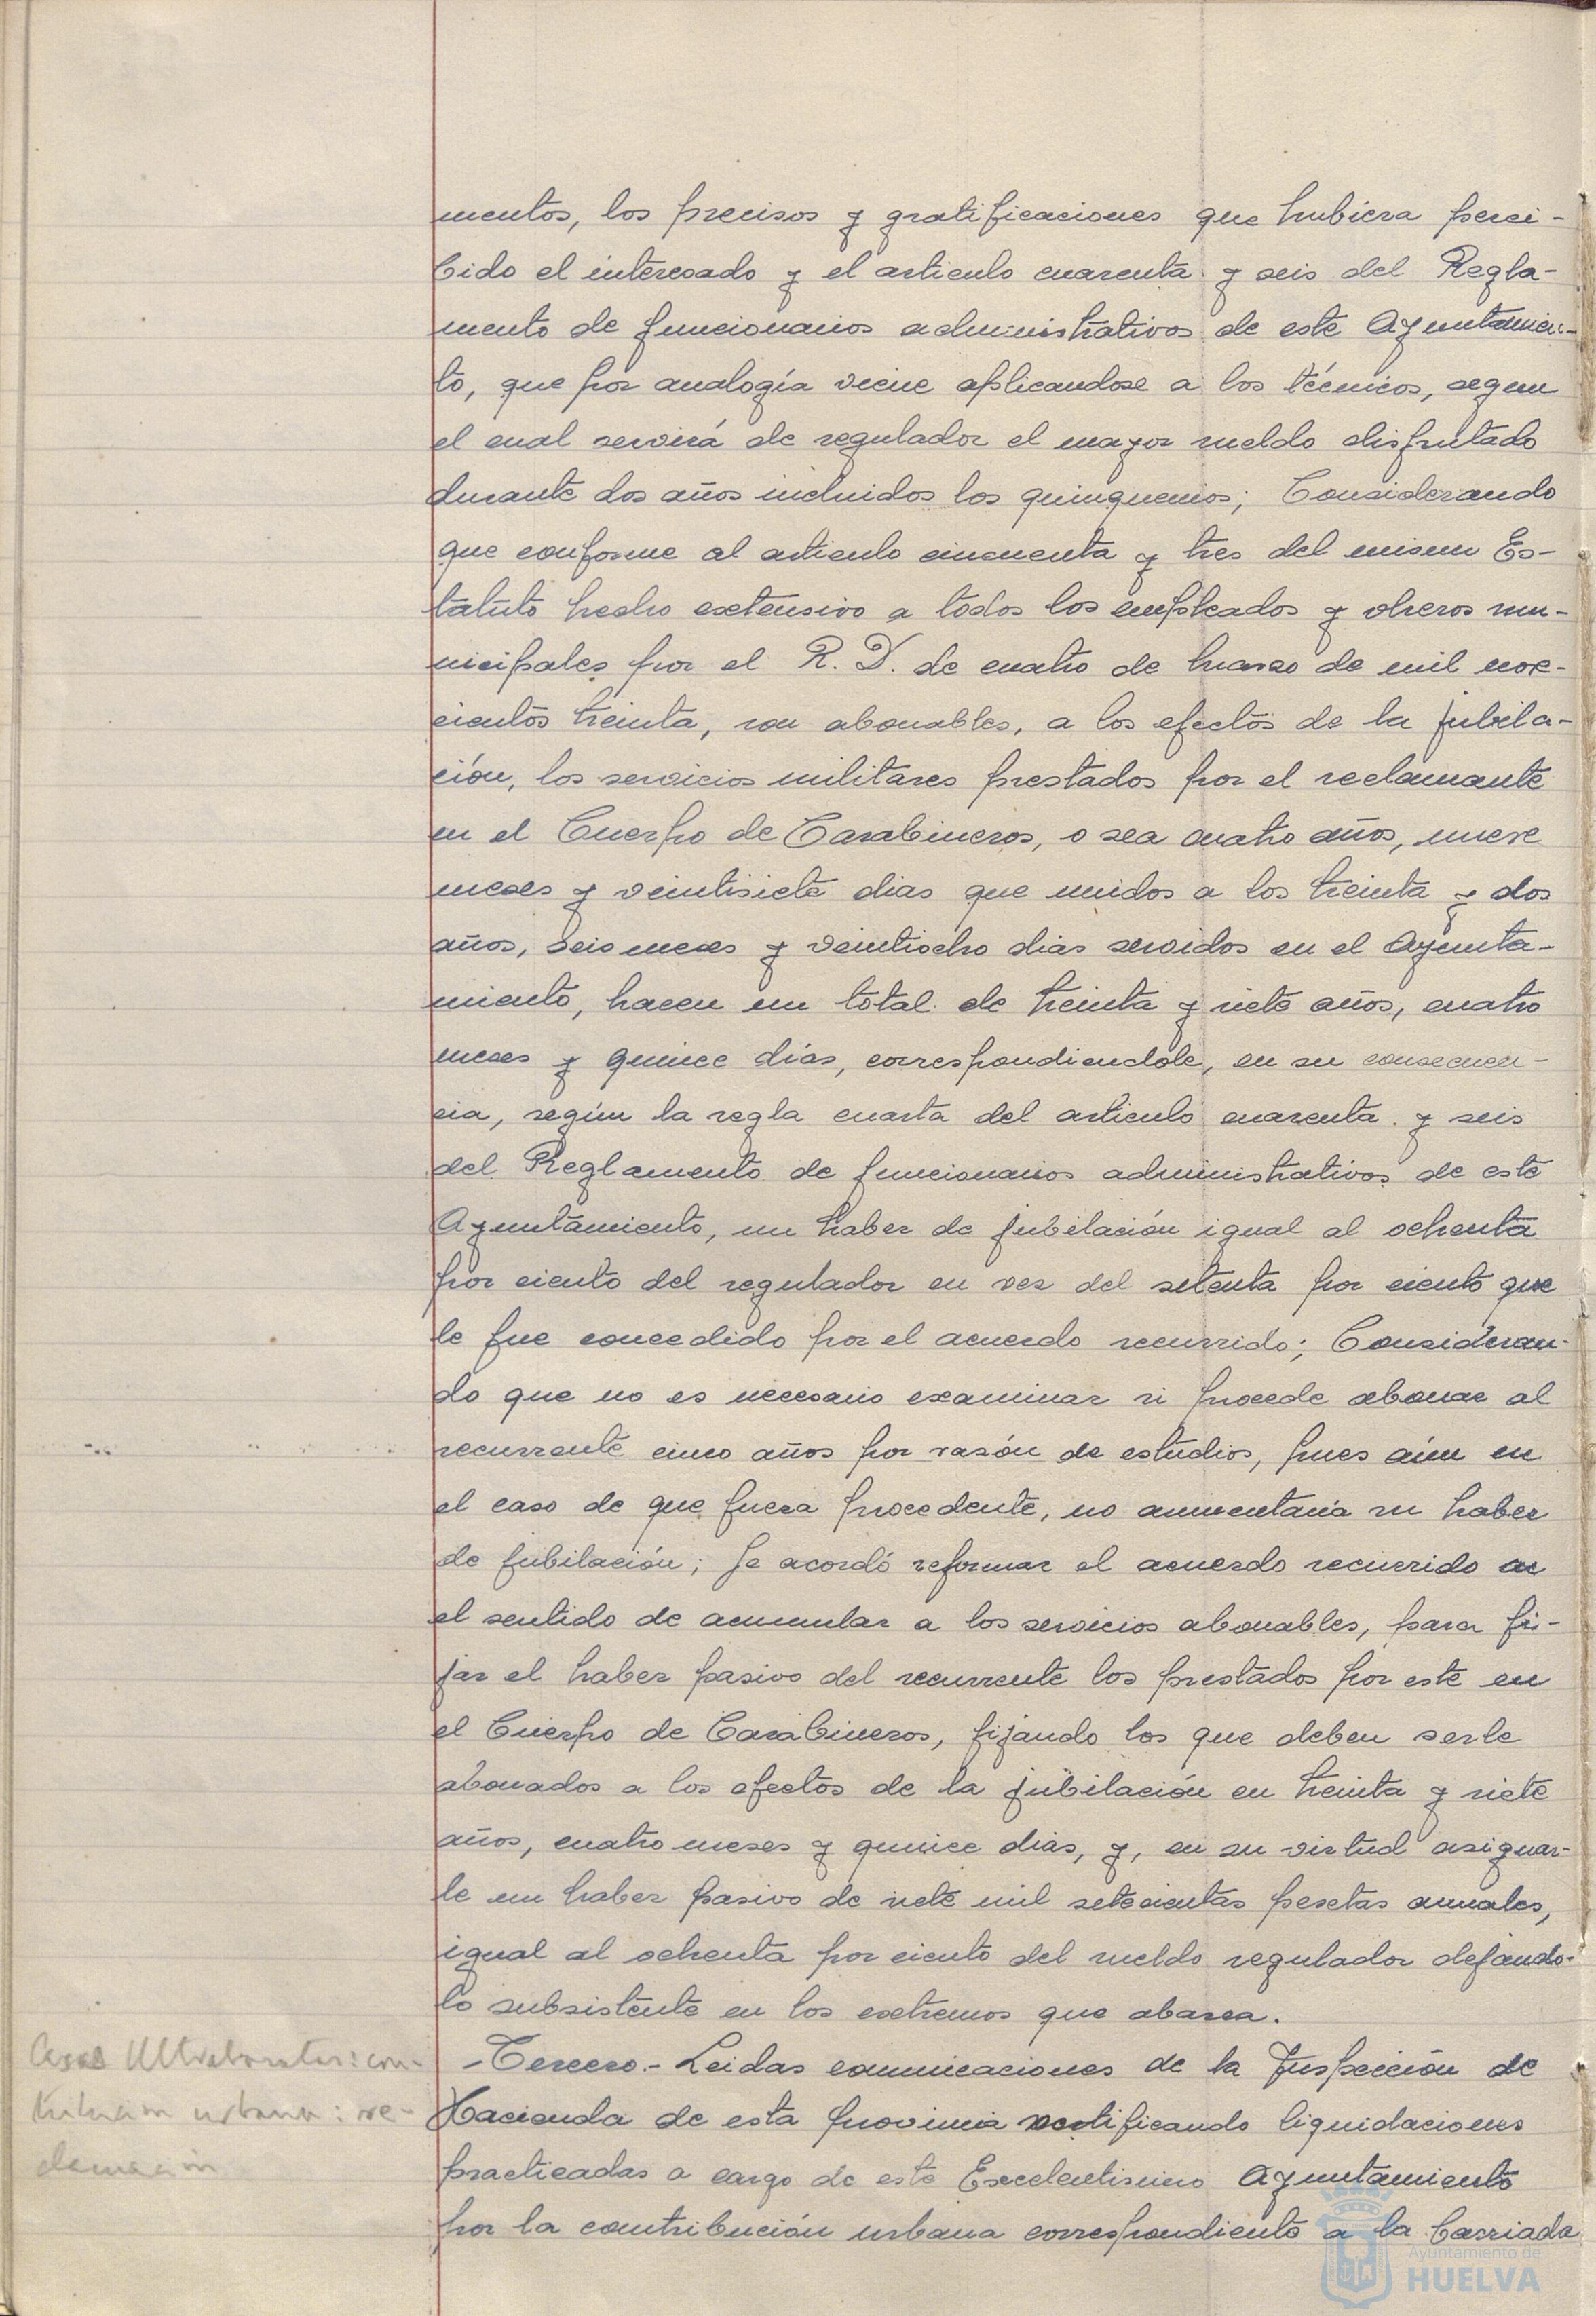 mentos, los precisos y gratificaciones que hubiera perci-
bido el interesado y el articulo cuarenta y seis del Regla-
mento de funcionarios administrativos de este Ayuntamien-
to, que por analogía viene aplicandose a los técnicos, segun
el cual servirá de regulador el mayor sueldo disfrutado
durante dos años incluidos los quinquenios; Considerando
que conforme al articulo cincuenta y tres del mismo Es-
tatuto hecho extensivo a todos los empleados y obreros mu-
nicipales por el R. D. de cuatro de marzo de mil nove-
cientos treinta, son abonables, a los efectos de la jubila-
ción, los servicios militares prestados por el reclamante
en el Cuerpo de Carabineros, o sea cuatro años, nueve
meses y veintisiete dias que unidos a los treinta y dos
años, seis meses y veintiocho dias servidos en el Ayunta-
miento, hacen un total de treinta y siete años, cuatro
meses y quince días, correspondiendole, en su consecuen-
cia, según la regla cuarta del articulo cuarenta y seis
del Reglamento de funcionarios administrativos de este
Ayuntamiento, un haber de jubilación igual al ochenta
por ciento del regulador en vez del setenta por ciento que
le fue concedido por el acuerdo recurrido; Consideran-
do que no es necesario examinar si procede abonar al
recurrente cinco años por razón de estudios, pues aún en
el caso de que fuera procedente, no aumentaria su haber
de jubilación; Se acordó reformar el acuerdo recurrido en
el sentido de acumular a los servicios abonables, para fi-
jar el haber pasivo del recurrente los prestados por este en
el Cuerpo de Carabineros, fijando los que deben serle
abonados a los efectos de la jubilación en treinta y siete
años, cuatro meses y quince dias, y, en su virtud asignar-
le un haber pasivo de siete mil setecientas pesetas anuales,
igual al ochenta por ciento del sueldo regulador dejando-
lo subsistente en los extremos que abarca.
Casas Ultrabaratas: con-
tribucion urbana: re-
clamación
-Tercero.- Leidas comunicaciones de la Inspección de
Hacienda de esta provincia notificando liquidaciones
practicadas a cargo de este Excelentisimo Ayuntamiento
por la contribución urbana correspondiente a la barriada
Ayuntamiento de
HUELVA